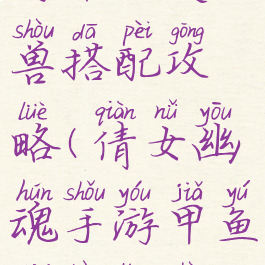 shòu dā pèi gōng
兽搭配攻
lüè qiàn nǚ yōu
略(倩女幽
hún shǒu yóu jiǎ yú
魂手游甲鱼